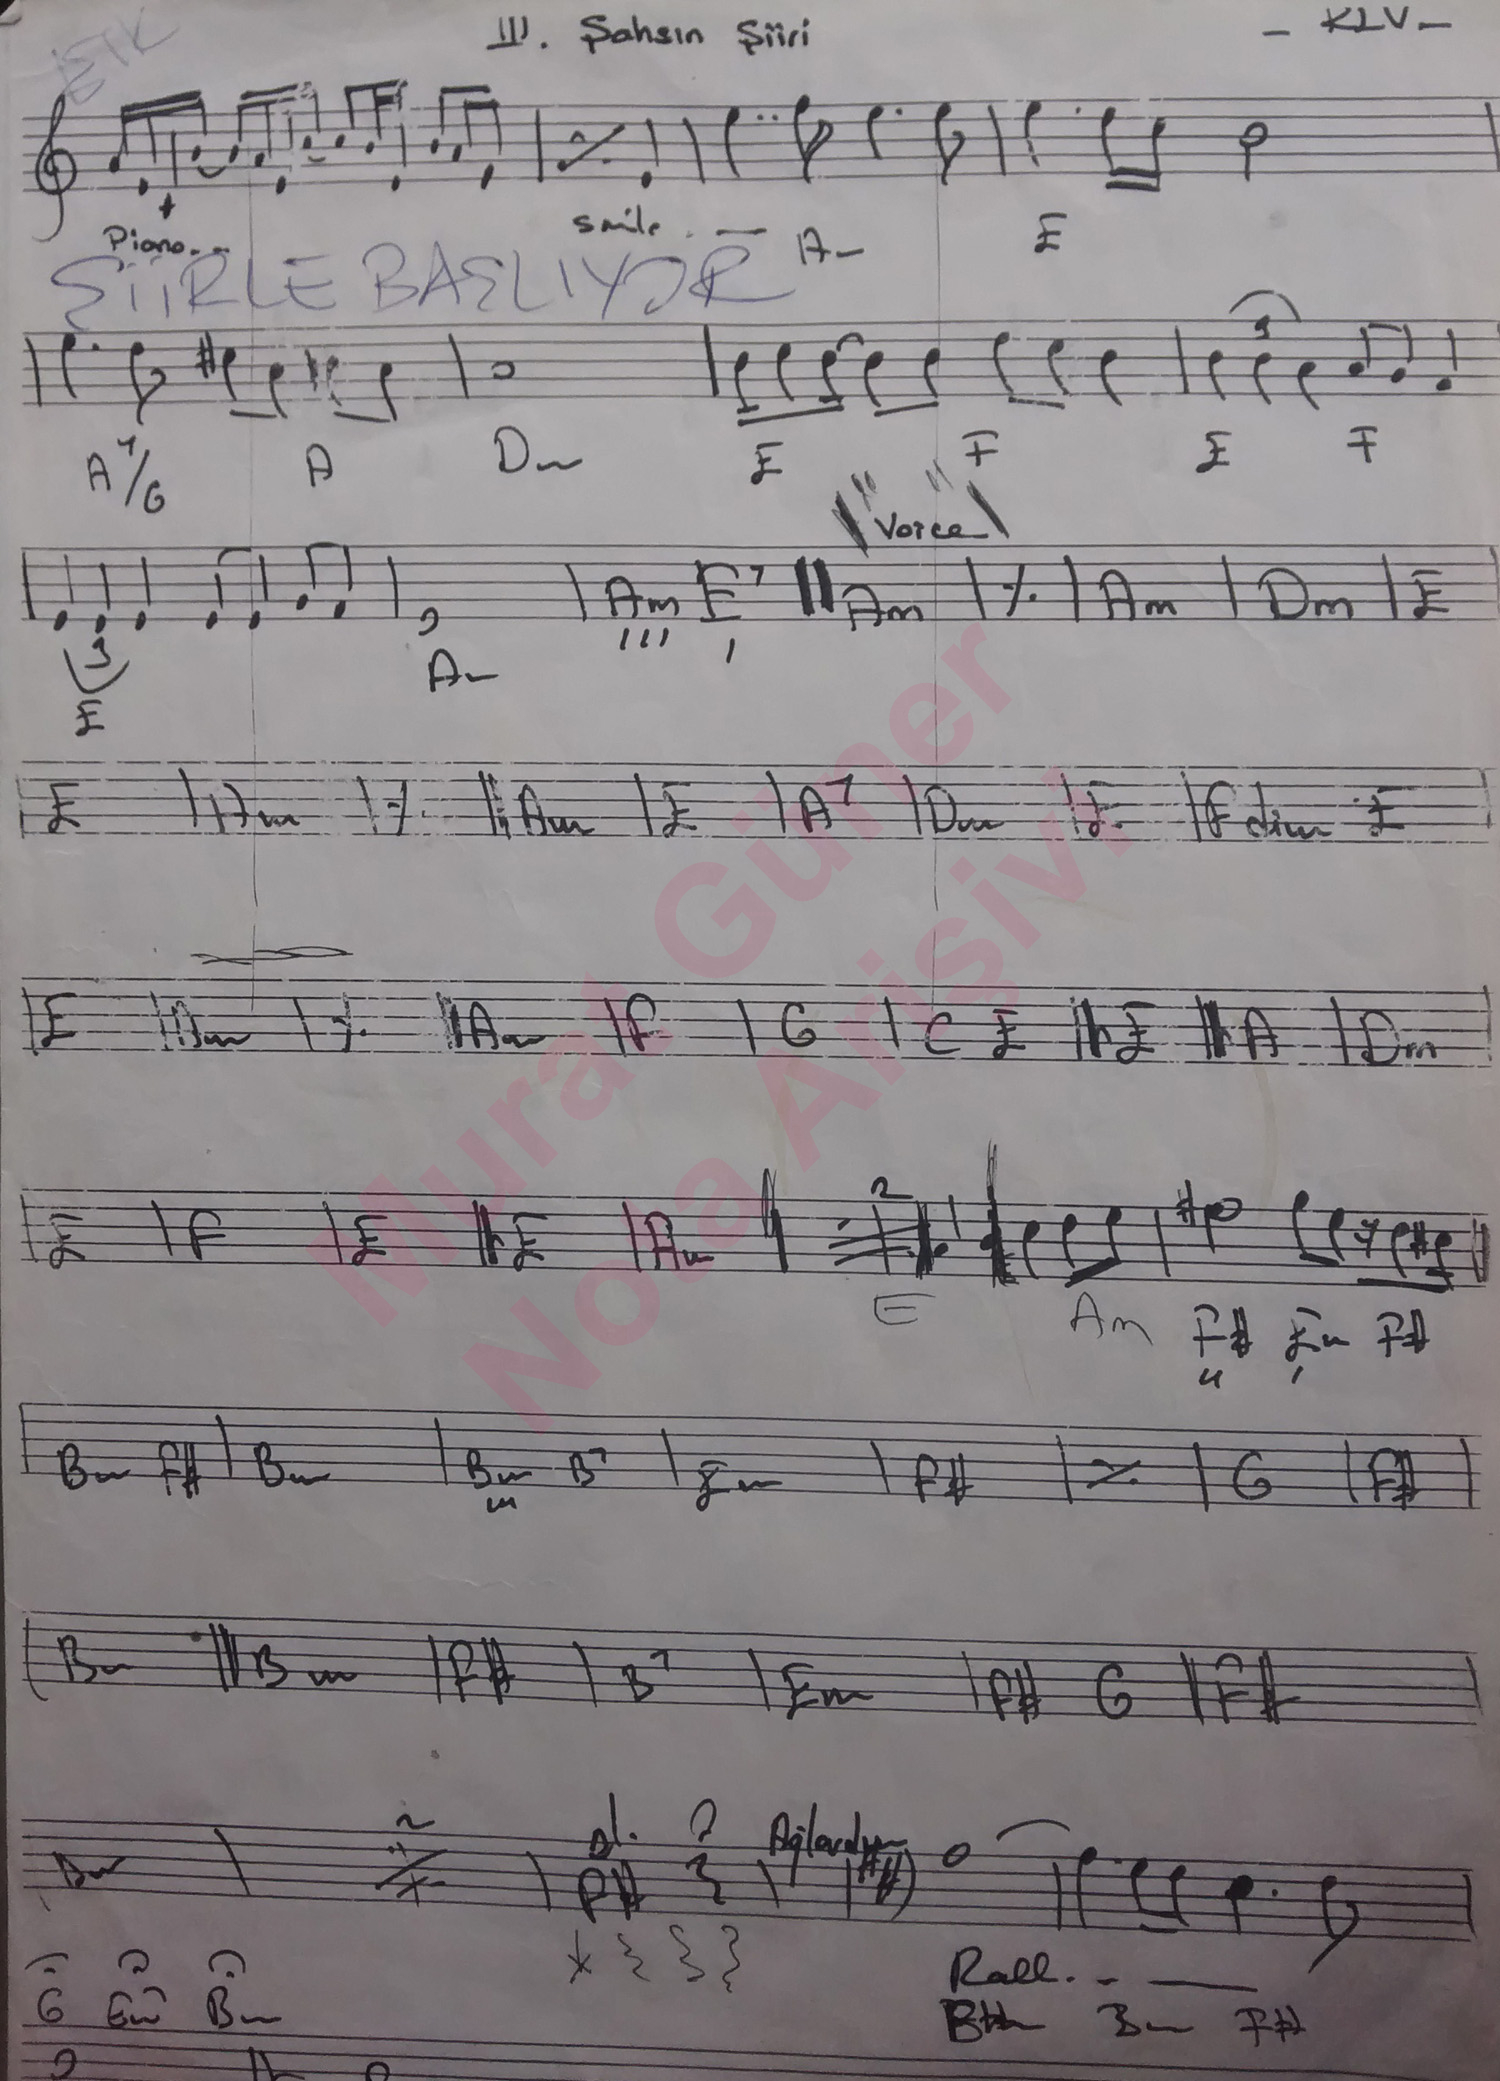 III. Şahsın Şiiri - KLV -
Piano.. Simile. — Am E
ŞİİRLE BAŞLIYOR
3
A7/G A Dm E F E F
"Voice"
Am E7 Am Am Dm E
3
Am
E
E Am Am E A7 Dm E Fdim E
E Am Am F G C E E A Dm
2
E F E E Am
E Am F# Em F#
Bm F# Bm Bm B7 Em F# G F#
Bm Bm F# B7 Em F# G F#
2
Bm F#
Rall. - —
G Em Bm Bm F#
Murat Güner
Nota Arşivi